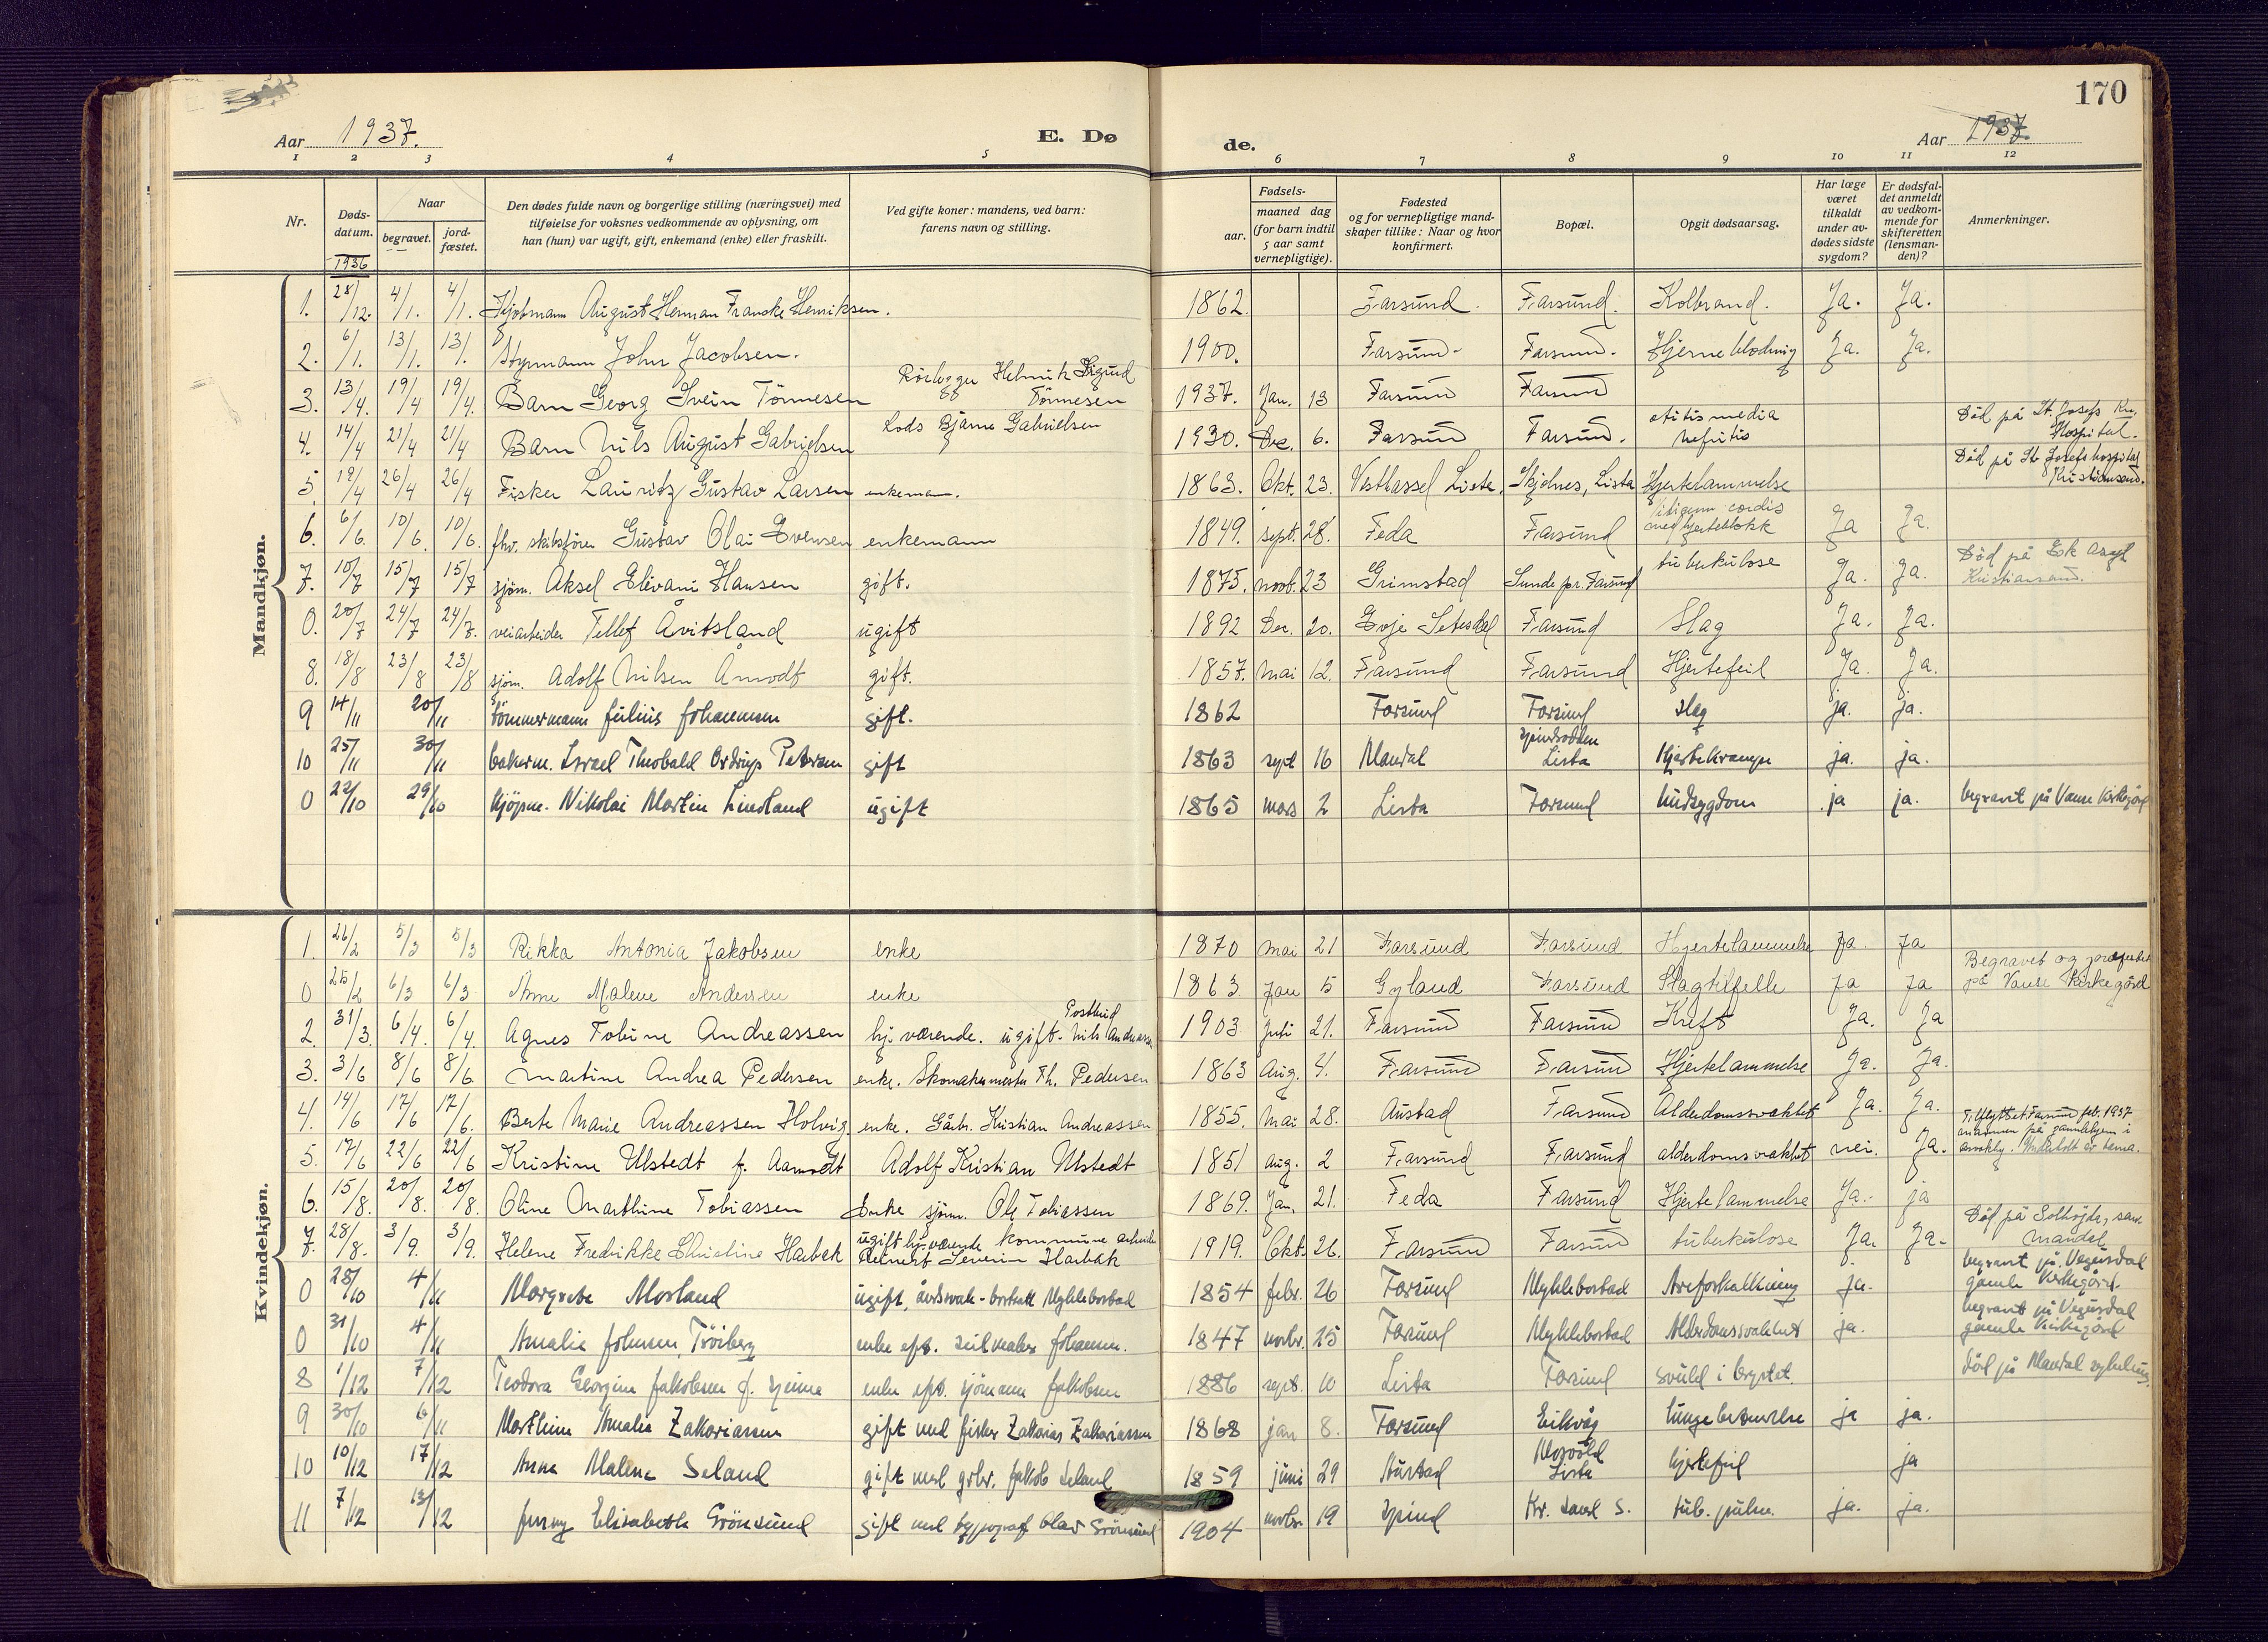 170
Aar 1937.
E. Dø
de.
Aar 1937.
1 2 3 4 5 6 7 8 9 10 11 12
Nr.
Døds-datum.
Naar
begravet.
jord-fæstet.
Den dødes fulde navn og borgerlige stilling (næringsvei) med tilføielse for voksnes vedkommende av oplysning, om han (hun) var ugift, gift, enkemand (enke) eller fraskilt.
Ved gifte koner: mandens, ved barn: farens navn og stilling.
Fødsels-
aar.
maaned dag
(for barn indtil 5 aar samt vernepligtige).
Fødested og for vernepligtige mandskaper tillike: Naar og hvor konfirmert.
Bopæl.
Opgit dødsaarsag.
Har læge været tilkaldt under avdødes sidste sygdom?
Er dødsfaldet anmeldt av vedkommende for skifteretten (lensmanden)?
Anmerkninger.
1936
Mandkjøn.
1. 28/12. 4/1. 4/1. Kjøbmann August Herman Francke Henriksen. 1862. Farsund. Farsund. Kolbrand. Ja. Ja.
2. 6/1. 13/1. 13/1. Styrmann John Jacobsen. 1900. Farsund. Farsund. Hjerneblødning Ja. Ja.
3. 13/4. 19/4 19/4. Barn Georg Svein Tönnesen Rörlegger Helmik Sigurd Tönnesen 1937. Jan. 13 Farsund Farsund
4. 14/4 21/4 21/4 Barn Nils August Gabrielsen Lods Bjarne Gabrielsen 1930. Dec. 6. Farsund Farsund. otitis media nefritis Död på St. Josefs Hospital.
5. 19/4 26/4 26/4 Fisker Lauritz Gustav Larsen enkeman. 1863. Okt. 23. Vesthassel Lista. Skjolnes, Lista Hjertelammelse Död på St. Josefs hospital Kristiansand.
6. 6/6. 10/6. 10/6. fhv. skibsförer Gustav Olai Evensen enkemann 1849. sept. 28. Feda Farsund cordis med hjerteblokk Ja Ja.
7. 10/7 15/7 15/7 sjøm. Aksel Elevani Hansen gift. 1875. novb. 23 Grimstad Sunde pr. Farsund tuberkulose Ja. Ja. Död på Kristiansand.
0. 20/7 24/7 24/7. veiarbeider Tellef Åvitsland ugift 1892 Dec. 20. Evje Setesdal Farsund Slag Ja. Ja.
8. 18/8 23/8 23/8 sjøm. Adolf Nilsen Åmodt gift. 1857. Mai 12. Farsund Farsund Hjertefeil Ja. Ja.
9 14/11 20/11 tömmermann Julius Johannesen gift. 1862 Farsund Farsund slag ja. ja.
10 25/11 30/11 bakerm. Israel Theobald Ordrup Petersen gift 1863 sept 16 Mandal Lista Hjertekrampe ja. ja.
0 22/10 29/10 kjöpm. Nikolai Martin Lindland ugift 1865 mars 2 Lista Farsund hudsygdom ja ja. begravet på Vanse kirkegård
Kvindekjøn.
1. 26/2 5/3 5/3 Rikka Antonia Jakobsen enke 1870 mai 21 Farsund Farsund Hjertelammelse Ja Ja
0 25/2 6/3 6/3 Anne Malene Andersen enke 1863 Jan 5 Gyland Farsund Slagtilfelle Ja Ja Begravet og på Vanse Kirkegård
2. 31/3. 6/4. 6/4. Agnes Tobine Andreassen hj. værende. ugift. Postbud Nils Andreassen 1903 Juli 21. Farsund Farsund Kreft Ja. Ja
3. 3/6 8/6 8/6. Martine Andrea Pedersen enke. Skomakermester Th. Pedersen 1863 Aug. 4. Farsund Farsund Hjertelammelse Ja. Ja.
4. 14/6 17/6 17/6. Berte Marie Andreassen Holvig. enke. Gårbr. Kristian Andreassen 1855. Mai 28. Austad Farsund Alderdomssvakhet Ja. Ja.
5. 17/6 22/6 22/6 Kristine Ulstedt f. Aamodt Adolf Kristian Ulstedt 1851 Aug. 2 Farsund Farsund alderdomssvakhet nei. Ja. Tilflyttet Farsund feb. 1937
6. 15/8. 20/8. 20/8. Oline Marthine Tobiassen Enke sjøm. Ole Tobiassen 1869. Jan. 21. Feda Farsund Hjertelammelse Ja. ja
7. 28/8. 3/9. 3/9. Helene Fredrikke Christine Harbak ugift hj. værende kommunearbeider Reinert Severin Harbak 1919. Okt. 26. Farsund Farsund tuberkulose Ja. Ja. Död på Mandal
0 28/10 4/11 Margrete Mosland ugift, åndssvak - bortsatt Myklebostad 1854 febr. 26 Farsund Myklebostad Areforkalkning ja. begravet på Vegusdal gamle kirkegård
0 31/10 4/11 Amalie Johnsen, Tröiberg enke eft. seilmaker Johannesen. 1847 novbr. 25 Farsund Myklebostad Alderdomssvakhet ja. begravet på Vegusdal gamle kirkegård
8 1/12 7/12 Teodora Georgine Jakobsen f. enke eft. sjömann Jakobsen 1886 sept. 10 Lista Farsund svulst i brystet. död på Mandal sykehus.
9 30/10 6/11 Marthine Amalie Zakariassen gift med fisker Zakarias Zakariassen 1868 jan 8. Farsund Eikvåg lungebetennelse ja ja.
10 10/12 17/12 Anna Malene Seland gift med grbr. Jakob Seland 1859 juni 29 Austad Lista hjertefeil ja
11 7/12 13/12 Jenny Elisabeth Grönsund gift med typograf Olav Grönsund 1904 novbr. 19 Spind Kr. sand S. tub. pulm. ja. ja.